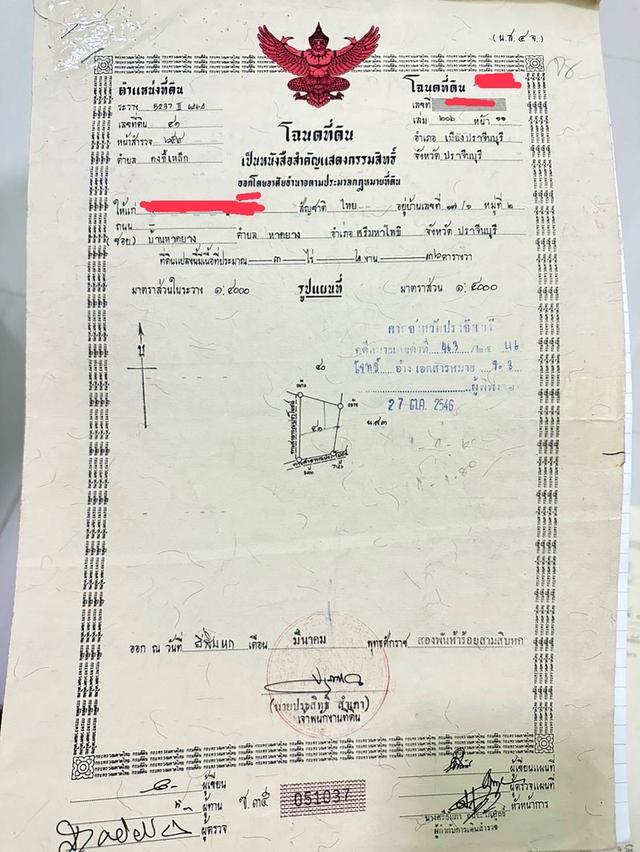 (น.ส. ๔ จ.)
ตำแหน่งที่ดิน
ระวาง 5237 II
เลขที่ดิน ๕๑
หน้าสำรวจ
ตำบล ดงขี้เหล็ก
โฉนดที่ดิน
เลขที่
เล่ม ๒๐๖ หน้า ๑๑
อำเภอ เมืองปราจีนบุรี
จังหวัด ปราจีนบุรี
โฉนดที่ดิน
เป็นหนังสือสำคัญแสดงกรรมสิทธิ์
ออกโดยอาศัยอำนาจตามประมวลกฎหมายที่ดิน
ให้แก่ สัญชาติ ไทย อยู่บ้านเลขที่ ๑๗/๑ หมู่ที่ ๒
ถนน
(ซอย) บ้านหาดยาง ตำบล หาดยาง อำเภอ ศรีมหาโพธิ จังหวัด ปราจีนบุรี
ที่ดินแปลงนี้มีเนื้อที่ประมาณ ๓ ไร่ งาน ๓๒ ตารางวา
มาตราส่วนในระวาง ๑:๔๐๐๐ รูปแผนที่ มาตราส่วน ๑:๔๐๐๐
น
ศาลจังหวัดปราจีนบุรี
คดีหมายเลขดำที่ 463 /๒๕ 46
โจทก์ อ้าง เอกสารหมาย จ.3
ผู้พิพากษา
27 ต.ค. 2546
๕๐
๕๑
น.ส.๓
ออก ณ วันที่ สิบหก เดือน มีนาคม พุทธศักราช สองพันห้าร้อยสามสิบหก
(นายประสิทธิ์
เจ้าพนักงานที่ดิน
ผู้เขียน
ผู้ทาน
ผู้ตรวจ
ช.๓๕ 051037
ผู้เขียนแผนที่
ผู้ตรวจแผนที่
หัวหน้าการ
ผู้กำกับการเดินสำรวจ